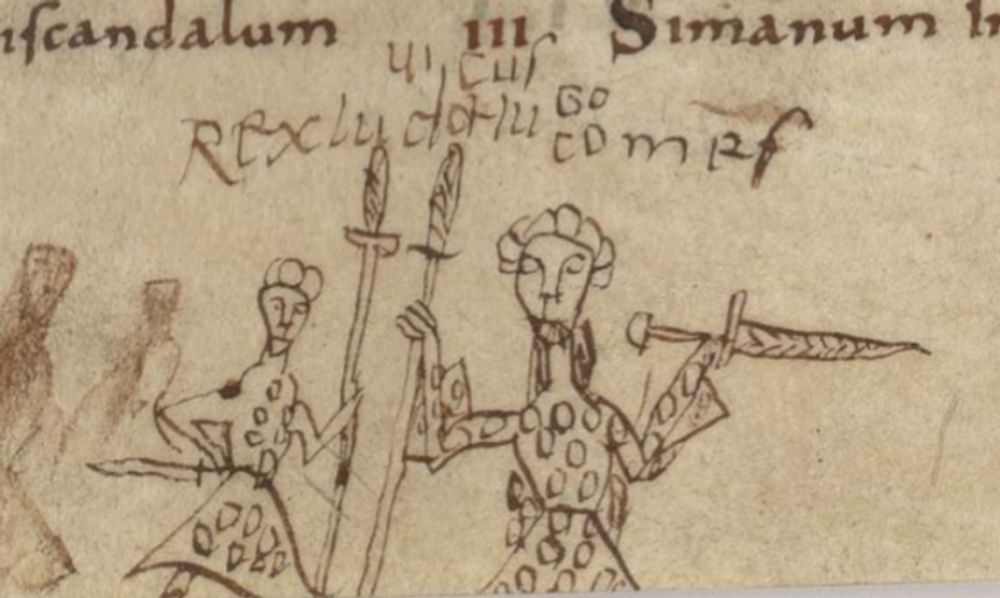 iſcandalum III Simanum
uicuſ
Rex ludotiu GO
comeſ